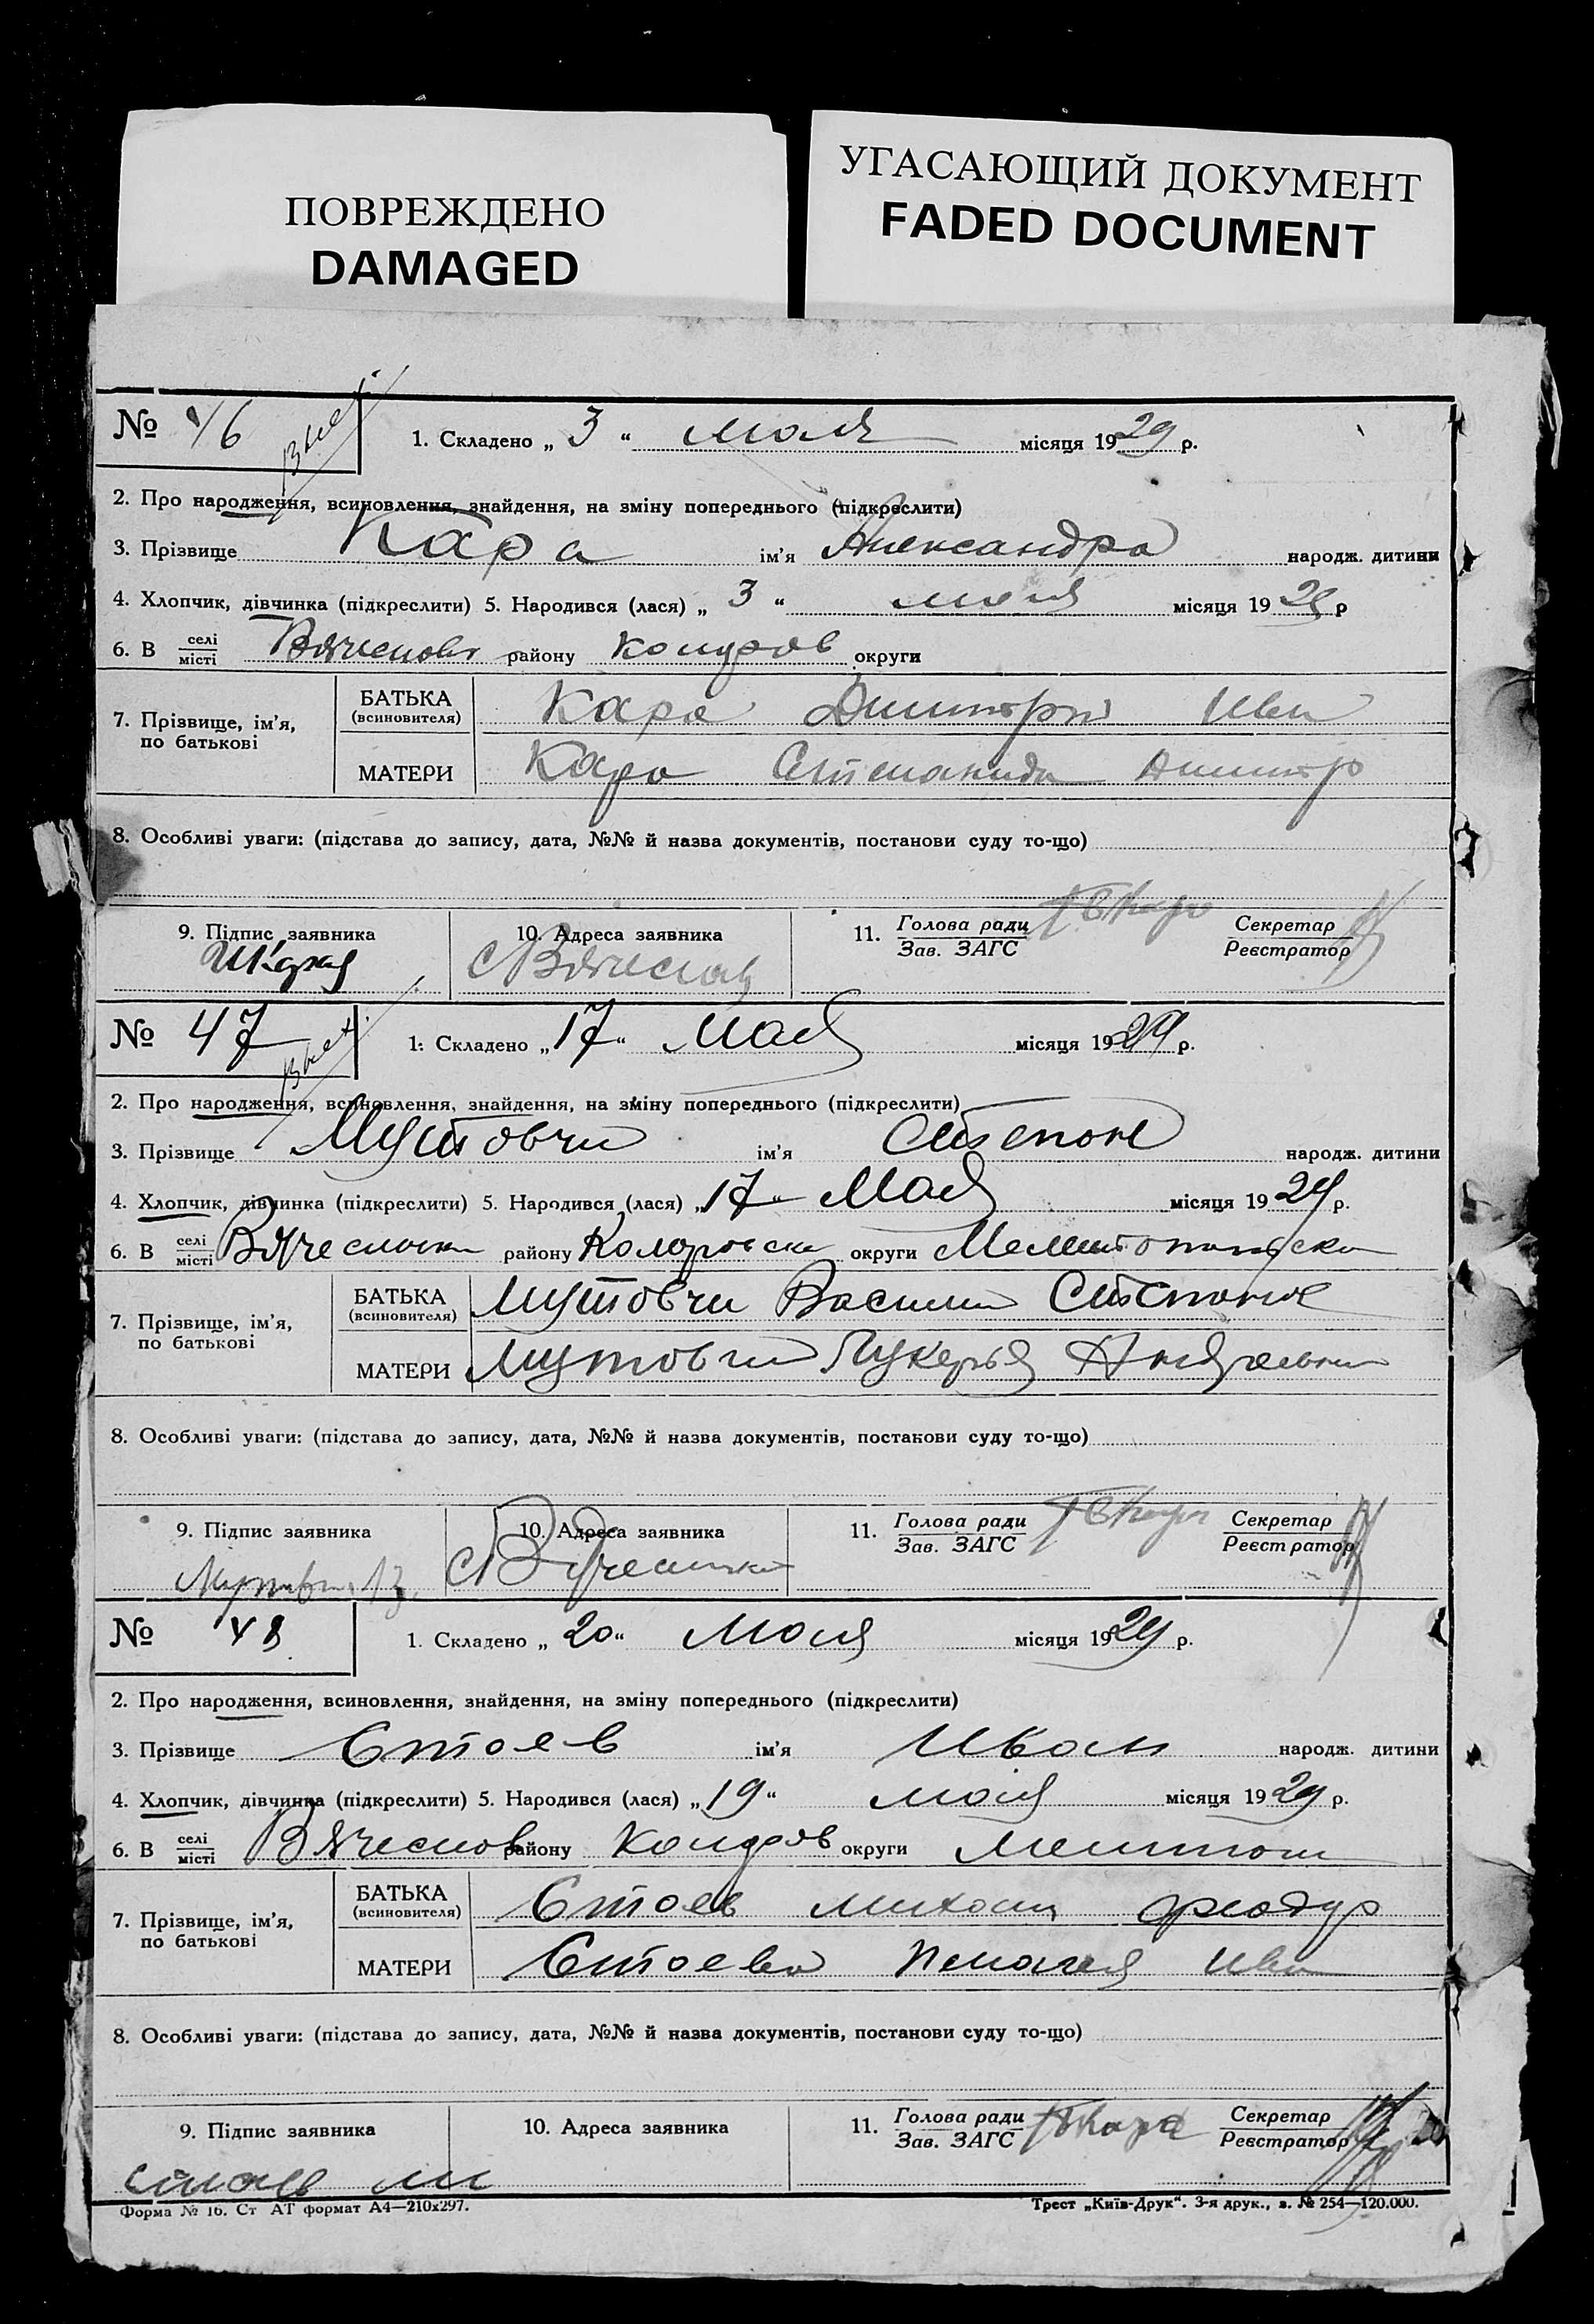 ПОВРЕЖДЕНО
DAMAGED
УГАСАЮЩИЙ ДОКУМЕНТ
FADED DOCUMENT
№ 46 1. Складено „ 3 “ мая місяця 1929 р.
2. Про народження, всиновлення, знайдення, на зміну попереднього (підкреслити)
3. Прізвище Кара ім’я Александра народж. дитини
4. Хлопчик, дівчинка (підкреслити) 5. Народився (лася) „ 3 “ мая місяця 1929 р
6. В селі місті Вячеслов району Колор ов округи
7. Прізвище, ім’я, по батькові
БАТЬКА (всиновителя) Кара Дмитрий Иван
МАТЕРИ Кара Степанида Дмитр
8. Особливі уваги: (підстава до запису, дата, №№ й назва документів, постанови суду то-що)
9. Підпис заявника 10. Адреса заявника 11. Голова ради Зав. ЗАГС Секретар Реєстратор
с Вячеслов
№ 47 1. Складено „ 17 “ Мая місяця 1929 р.
2. Про народження, всиновлення, знайдення, на зміну попереднього (підкреслити)
3. Прізвище Мутовчи ім’я Степан народж. дитини
4. Хлопчик, дівчинка (підкреслити) 5. Народився (лася) „ 17 “ Мая місяця 1929 р.
6. В селі місті Вячеславка району Коларовска округи Мелитопольска
7. Прізвище, ім’я, по батькові
БАТЬКА (всиновителя) Мутовчи Василий Степанов
МАТЕРИ Мутовчи Лукерья
8. Особливі уваги: (підстава до запису, дата, №№ й назва документів, постанови суду то-що)
9. Підпис заявника 10. Адреса заявника 11. Голова ради Зав. ЗАГС Секретар Реєстратор
Мутовчи В. с Вячеславка
№ 48 1. Складено „ 20 “ Мая місяця 1929 р.
2. Про народження, всиновлення, знайдення, на зміну попереднього (підкреслити)
3. Прізвище Стоев ім’я Иван народж. дитини
4. Хлопчик, дівчинка (підкреслити) 5. Народився (лася) „ 19 “ мая місяця 1929 р.
6. В селі місті Вячеслов району Колоров округи Мелитоп
7. Прізвище, ім’я, по батькові
БАТЬКА (всиновителя) Стоев Михаил Феодур
МАТЕРИ Стоева Пелагея Иван
8. Особливі уваги: (підстава до запису, дата, №№ й назва документів, постанови суду то-що)
9. Підпис заявника 10. Адреса заявника 11. Голова ради Зав. ЗАГС Кара Секретар Реєстратор
Форма № 16. Ст АТ формат А4—210х297. Трест „Київ-Друк“. 3-я друк., з. № 254—120.000.